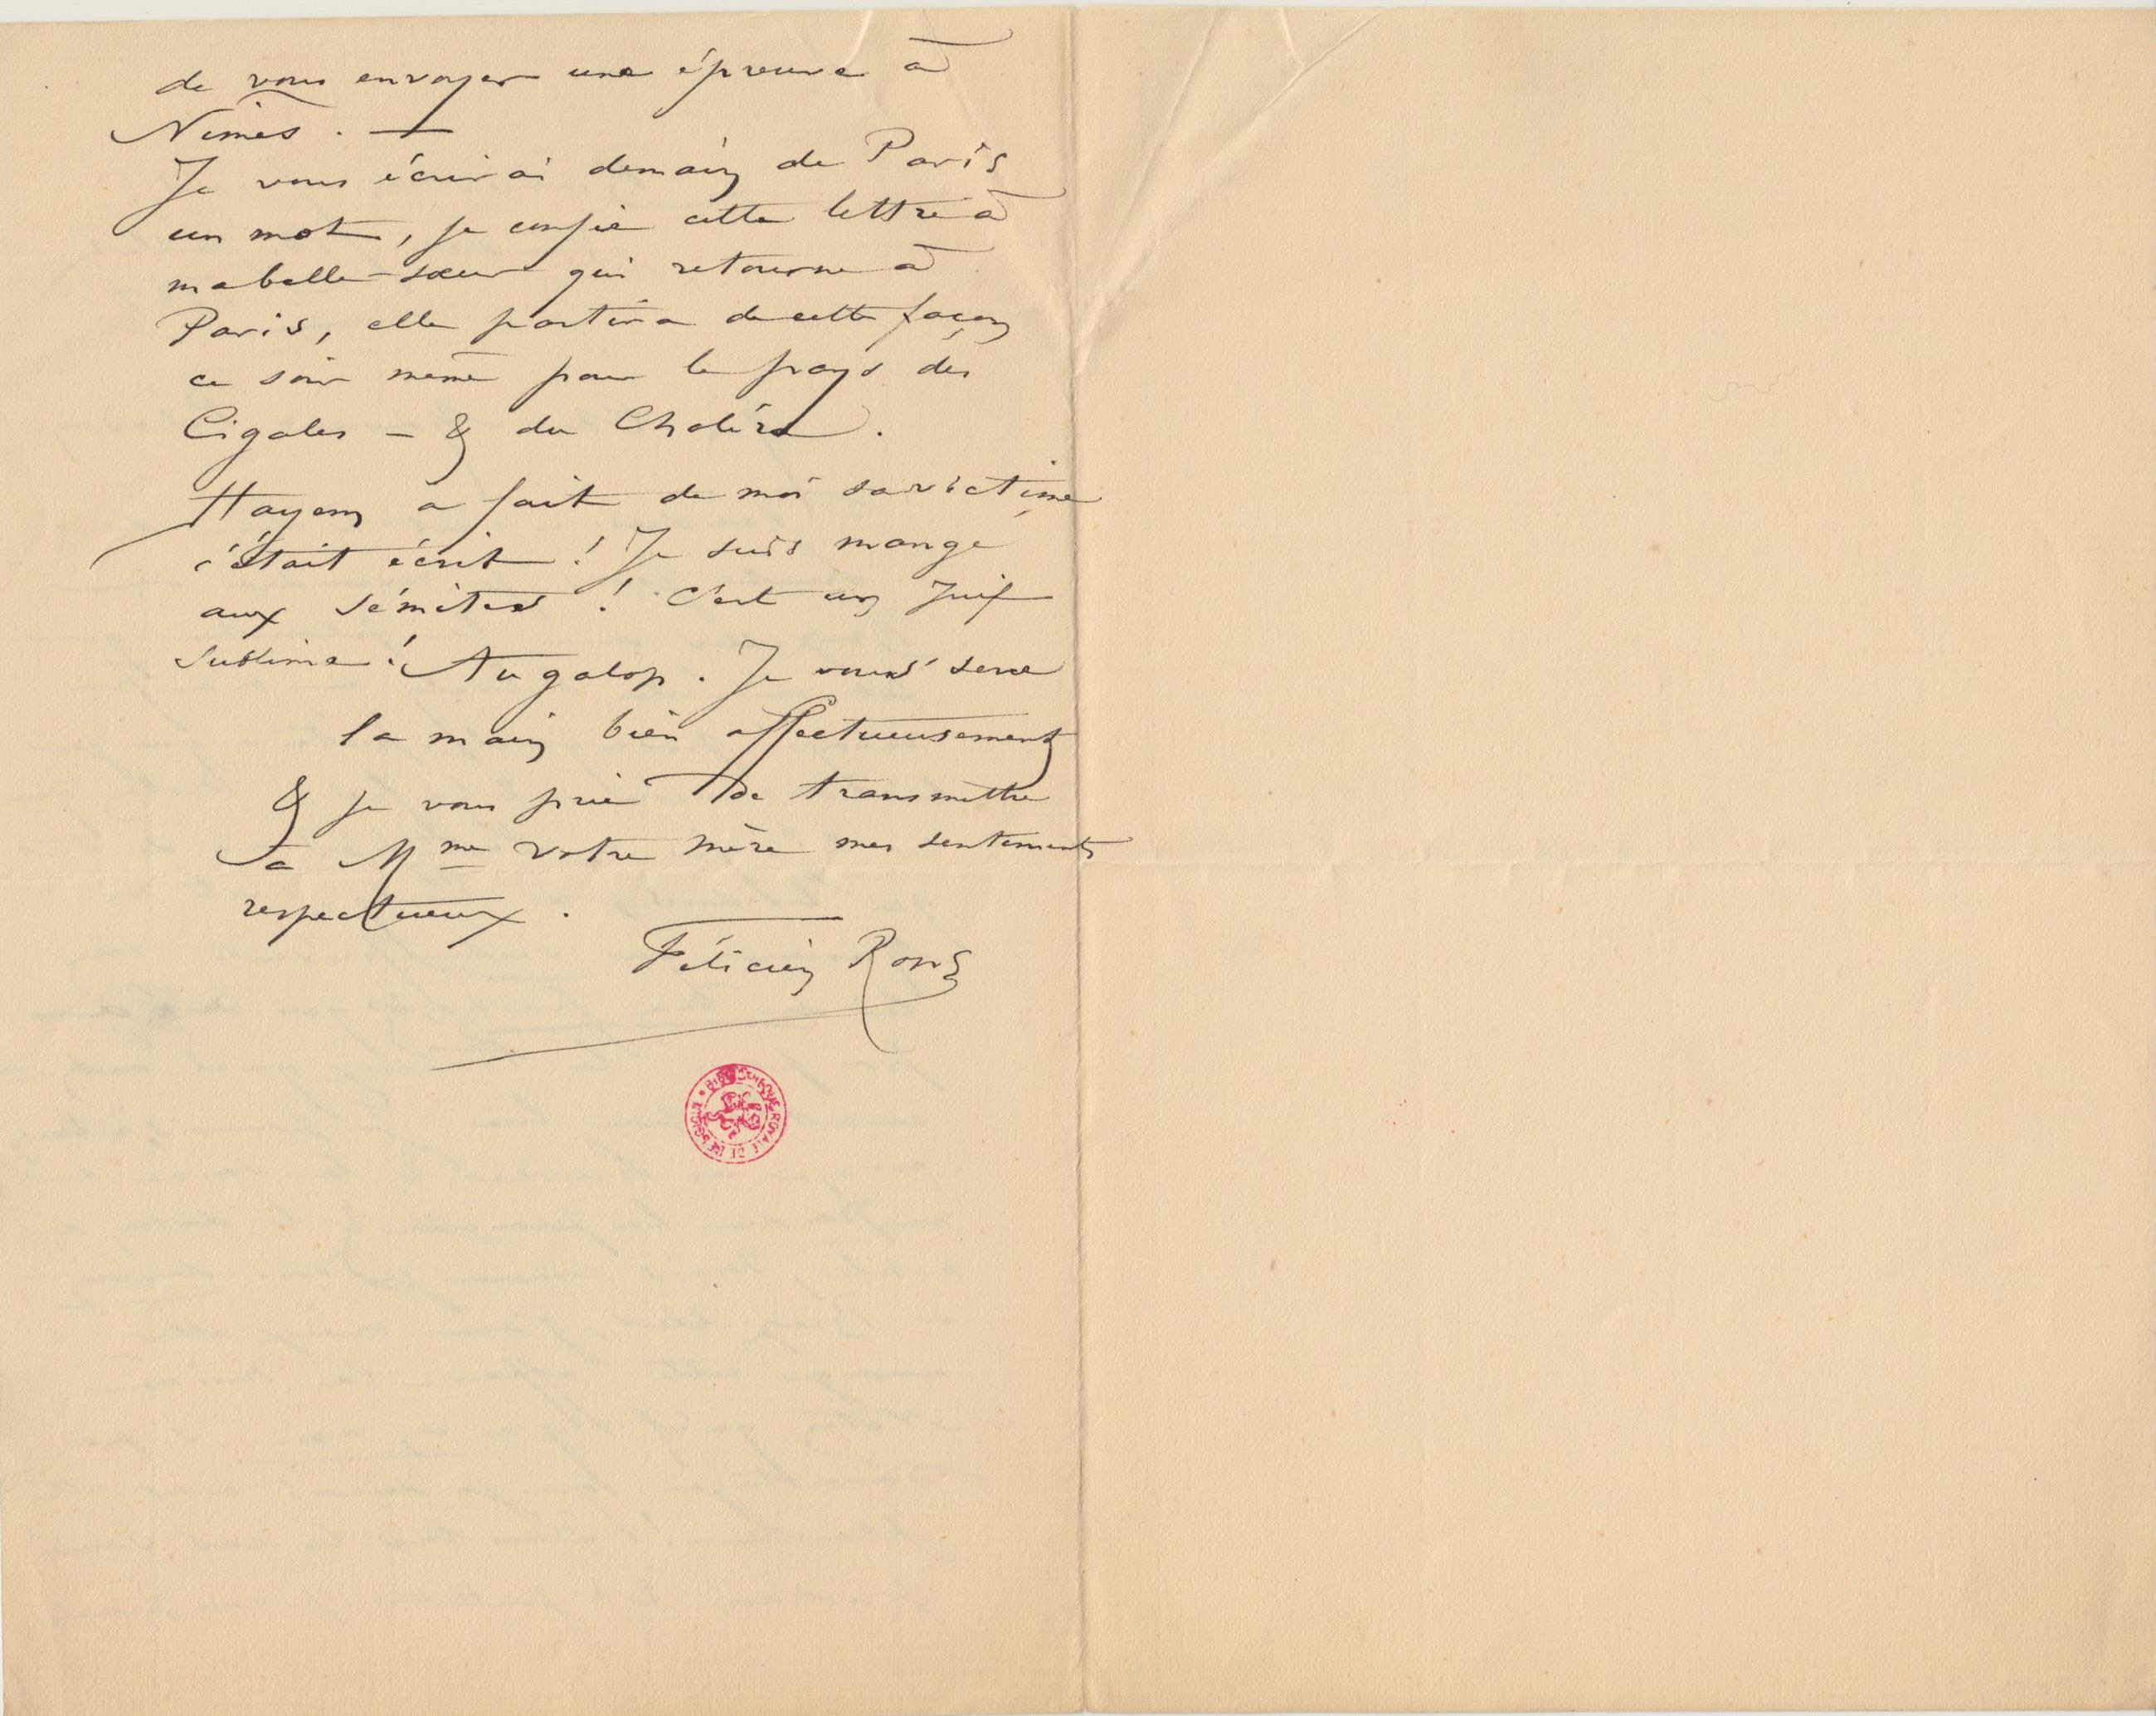 de vous envoyer une épreuve à
Nîmes. —
Je vous écrirai demain de Paris
un mot, je confie cette lettre à
ma belle-sœur qui retourne à
Paris, elle partira de cette façon
ce soir même pour le pays des
Cigales – & du Choléra.
Hayem a fait de moi sa victime
c'était écrit ! Je suis mangé
aux Sémites ! C'est un Juif
sublime ! Au galop. Je vous serre
la main bien affectueusement
& je vous prie de transmettre
à Mme votre mère mes sentiments
respectueux.
Félicien Rops
BIBLIOTHÈQUE ROYALE DE BELGIQUE